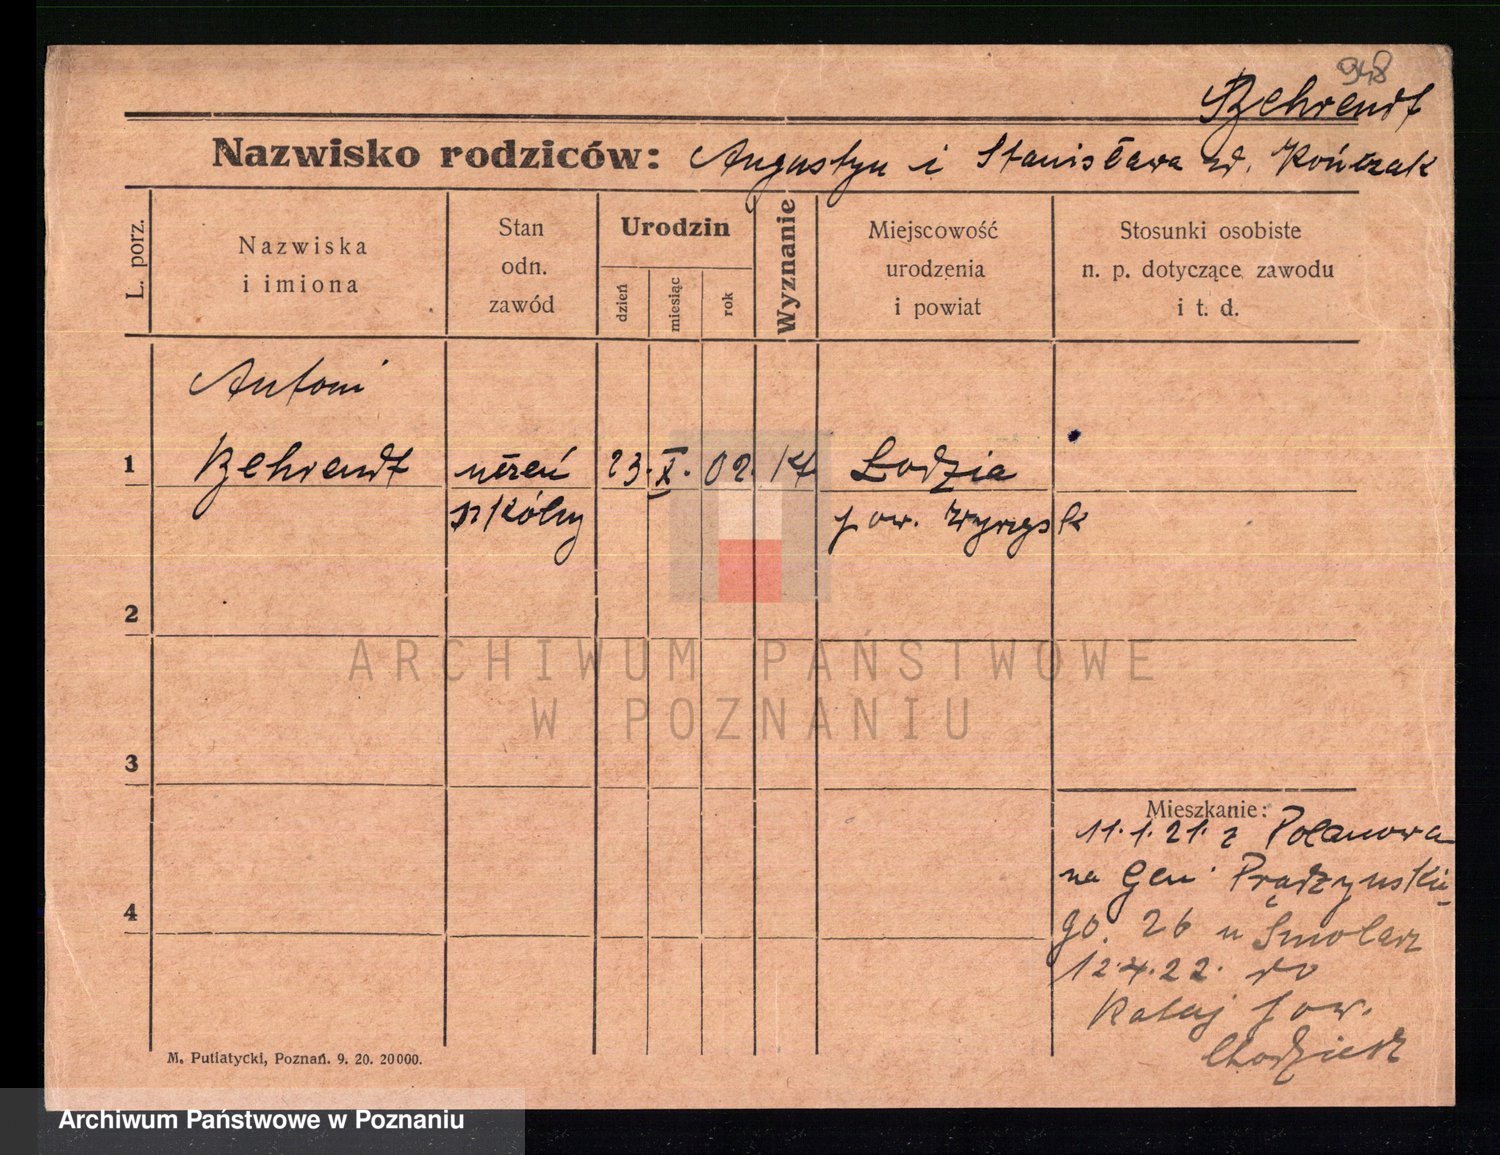 948
Behrendt
Nazwisko rodziców: Augustyn i Stanisława zd. Kończak
L. porz.
Nazwiska
i imiona
Stan
odn.
zawód
Urodzin
dzień
miesiąc
rok
Wyznanie
Miejscowość
urodzenia
i powiat
Stosunki osobiste
n. p. dotyczące zawodu
i t. d.
Antoni
1 Behrendt uczeń 23. X. 02. kt Łodzia
szkólny pow. Wyrzysk
2
3
4
Mieszkanie:
11.1.21. z Polanowa
na Gen. Prądzyńskie-
go. 26 u Smolarz
12.4.22. do
Rataj pow.
Chodzież
M. Putiatycki, Poznań. 9. 20. 20000.
ARCHIWUM PAŃSTWOWE
W POZNANIU
Archiwum Państwowe w Poznaniu